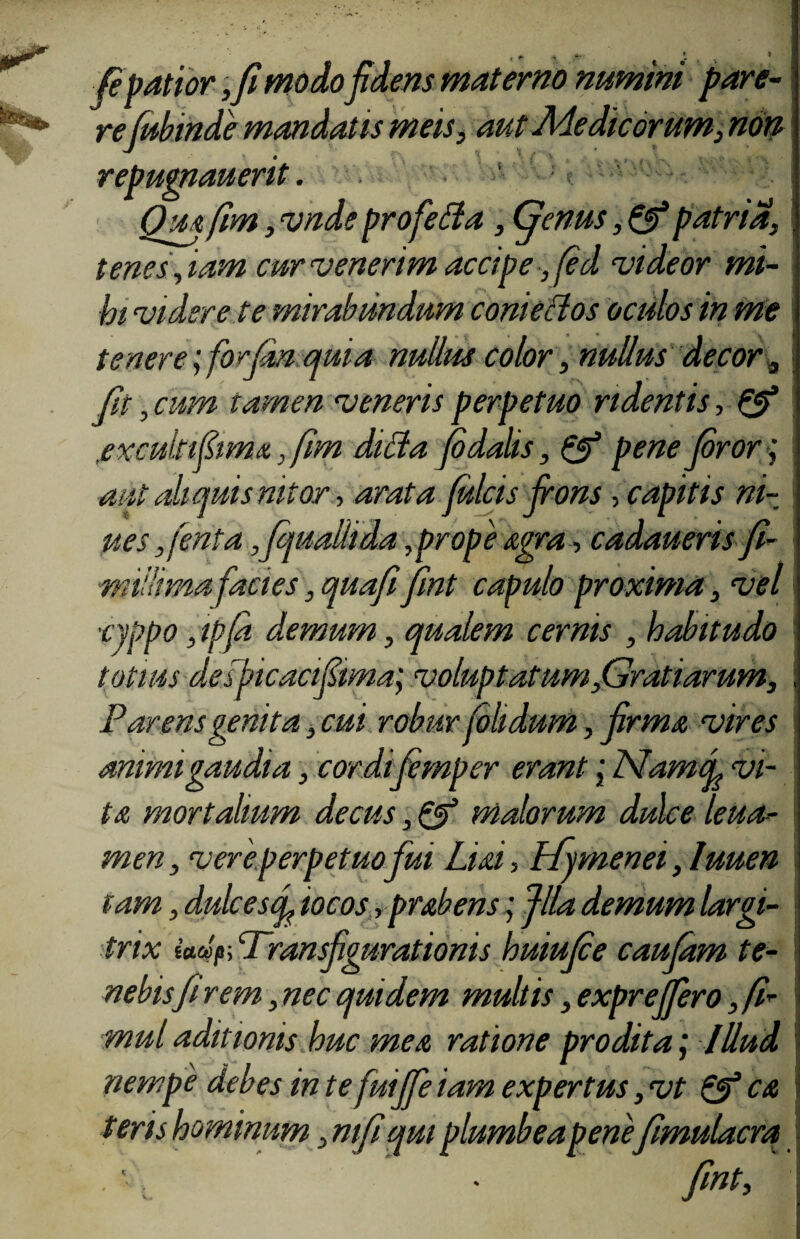 ſe patior, ſi modo fidens materno numini pare-
re ſubinde mandatis meis, aut Medicorum, non
repugnauerit.
Quæ ſim, vnde profecta, Genus, & patria,
tenes, iam cur venerim accipe, ſed videor mi-
hi videre te mirabundum coniectos oculos in me
tenere; forſan quia nullus color, nullus decor,
ſit, cum tamen veneris perpetuo ridentis, &
excultiſsimæ, ſim dicta ſodalis, & pene ſoror;
aut aliquis nitor, arata ſulcis frons, capitis ni-
ues, ſenta, ſquallida, prope ægra, cadaueris ſi-
millima facies, quaſi ſint capulo proxima, vel
cyppo, ipſa demum, qualem cernis, habitudo
totius deſpicaciſsima; voluptatum, Gratiarum,
Parens genita, cui robur ſolidum, firmæ vires
animi gaudia, cordi ſemper erant; Namq́; vi-
tæ mortalium decus, & malorum dulce leua-
men, vere perpetuo fui Liæi, Hymenei, Iuuen
tam, dulcesq́; iocos, præbens; Illa demum largi-
trix Transfigurationis huiuſce cauſam te-
nebis ſi rem, nec quidem multis, expreſſero, ſi-
mul aditionis huc meæ ratione prodita; Illud
nempe debes in te fuiſſe iam expertus, vt & cæ
teris hominum, niſi qui plumbea pene ſimulacra
ſint,